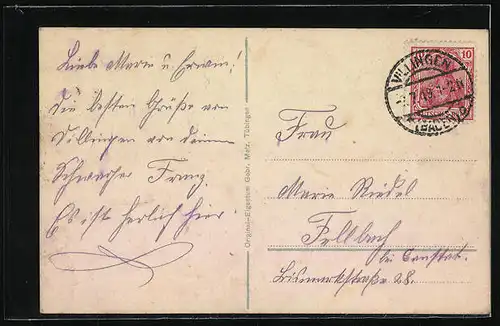 Liebe Marie u. Erwin!
Die besten Grüße von
Villingen von deinem
Schwager Franz.
Es ist herlich hier.
Original-Eigentum Gebr. Metz, Tübingen
10
VILLINGEN
1-2N
(BADEN)
Frau
Marie Riedel
Fellbach
bei Canstat.
Bismarkstraße 28.